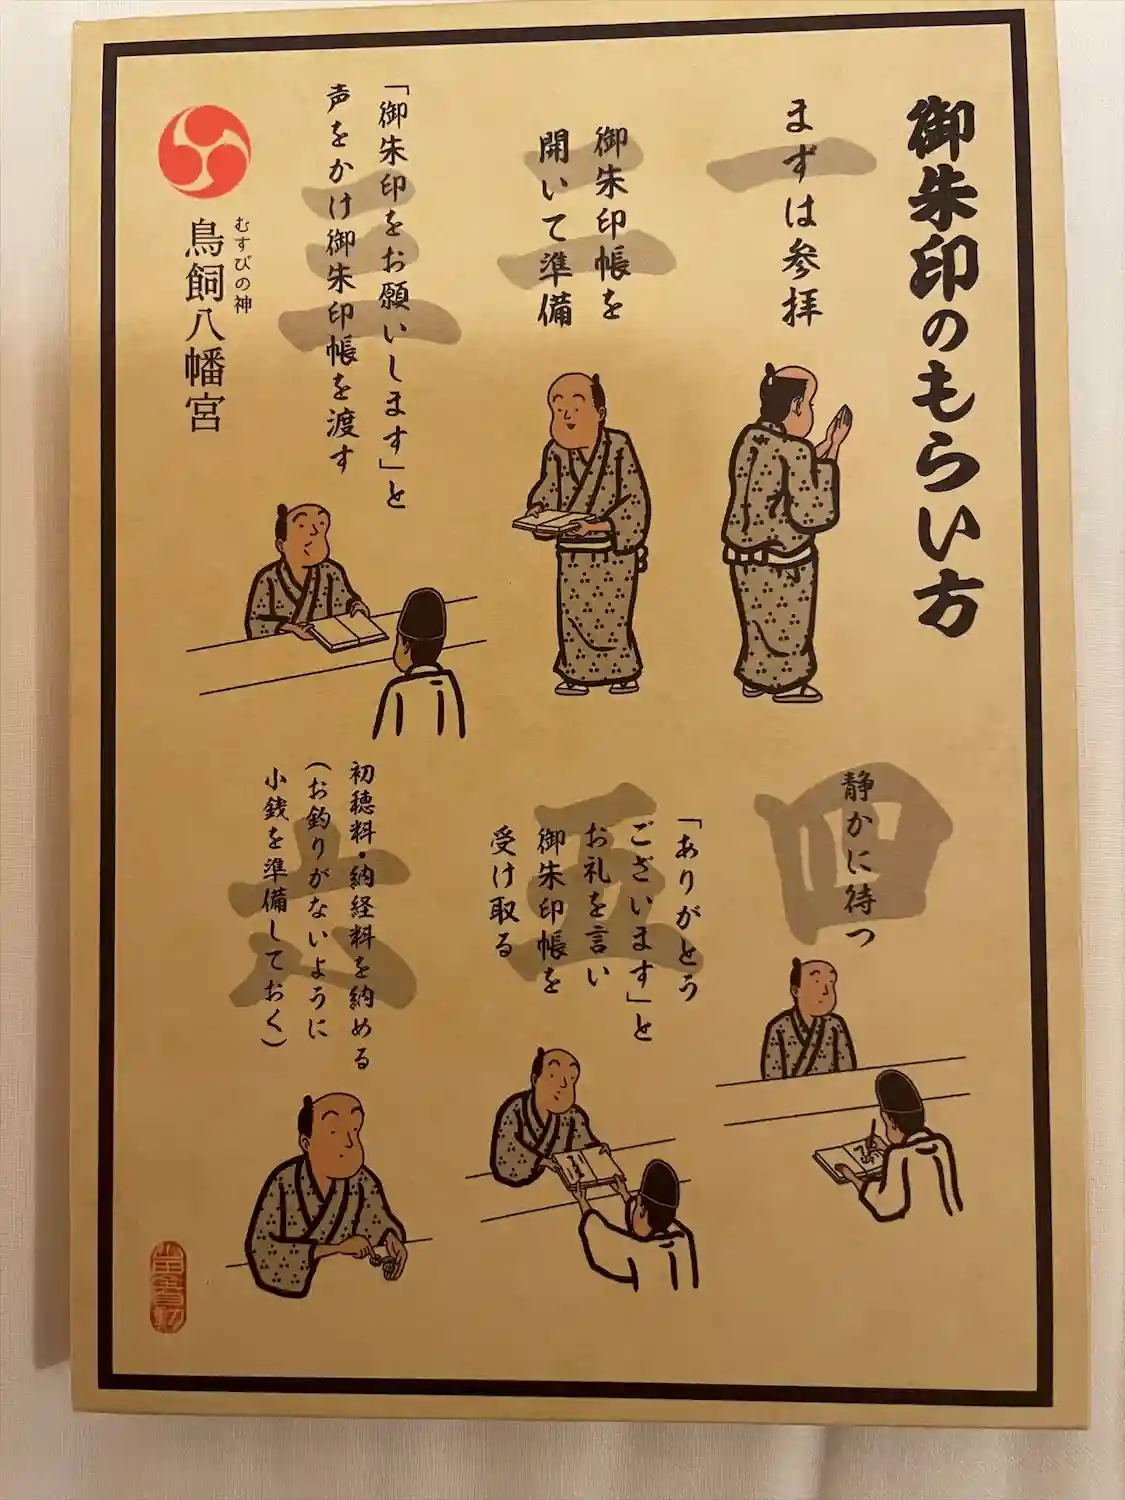 御朱印のもらい方
一
まずは参拝
二
御朱印帳を
開いて準備
三
「御朱印をお願いします」と
声をかけ御朱印帳を渡す
むすびの神
鳥飼八幡宮
四
静かに待つ
五
「ありがとう
ございます」と
お礼を言い
御朱印帳を
受け取る
六
初穂料・納経料を納める
(お釣りがないように
小銭を準備しておく)